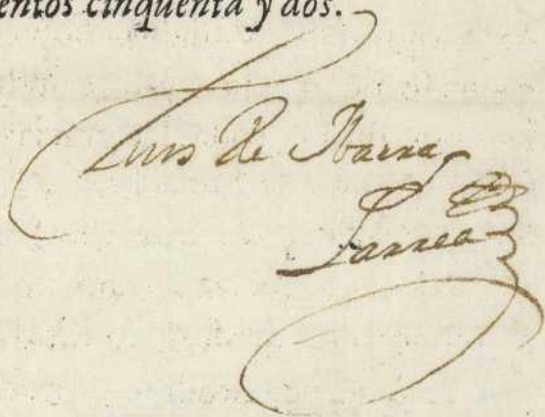 entos cinquenta y dos.
Luis de Ibarra
Larrea